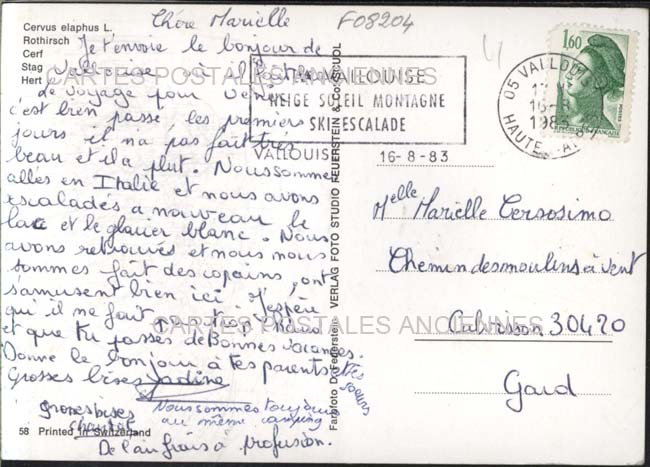 Chère Marielle
F08204
Cervus elaphus L.
Rothirsch
Cerf
Stag
Hert
Je t'envoie le bonjour de
Vallouise où
Le voyage pour venir
c'est bien passé les premiers
jours il n'a pas fait très
beau et il a plut. Nous sommes
allés en Italie et nous avons
escaladés à nouveau le
lac et le glacier blanc. Nous
avons retrouvés et nous nous
sommes fait des copains, ont
s'amusent bien ici J'espère
qu'il ne fait pas trop chaud
et que tu passes de Bonnes vacances.
Donne le bonjour à tes parents et tes
soeurs
Grosses bises Nadine
grosses bises
chantal
Nous sommes toujours
au même camping
De l'air frais à profusion.
58 Printed in Switzerland
Farbfoto D. Federstein VERLAG FOTO STUDIO REUERSTEIN & Co SCUOL
VALLOUISE
NEIGE SOLEIL MONTAGNE
SKI ESCALADE
VALLOUISE
16-8-83
05 VALLOUISE
16-8
1983
HAUTES-ALPES
1,60
Melle Marielle Cersosimo
Chemin des moulins à vent
Calvisson 30420
Gard
CARTES POSTALES ANCIENNES
CARTES POSTALES ANCIENNES